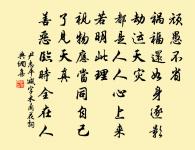 頑愚不省
禍福還如身逐影
劫运天災
都是人人心上來
若明此理
視物應當同自己
了見天真
善惡臨時全在人
尹志平減字木蘭花詞